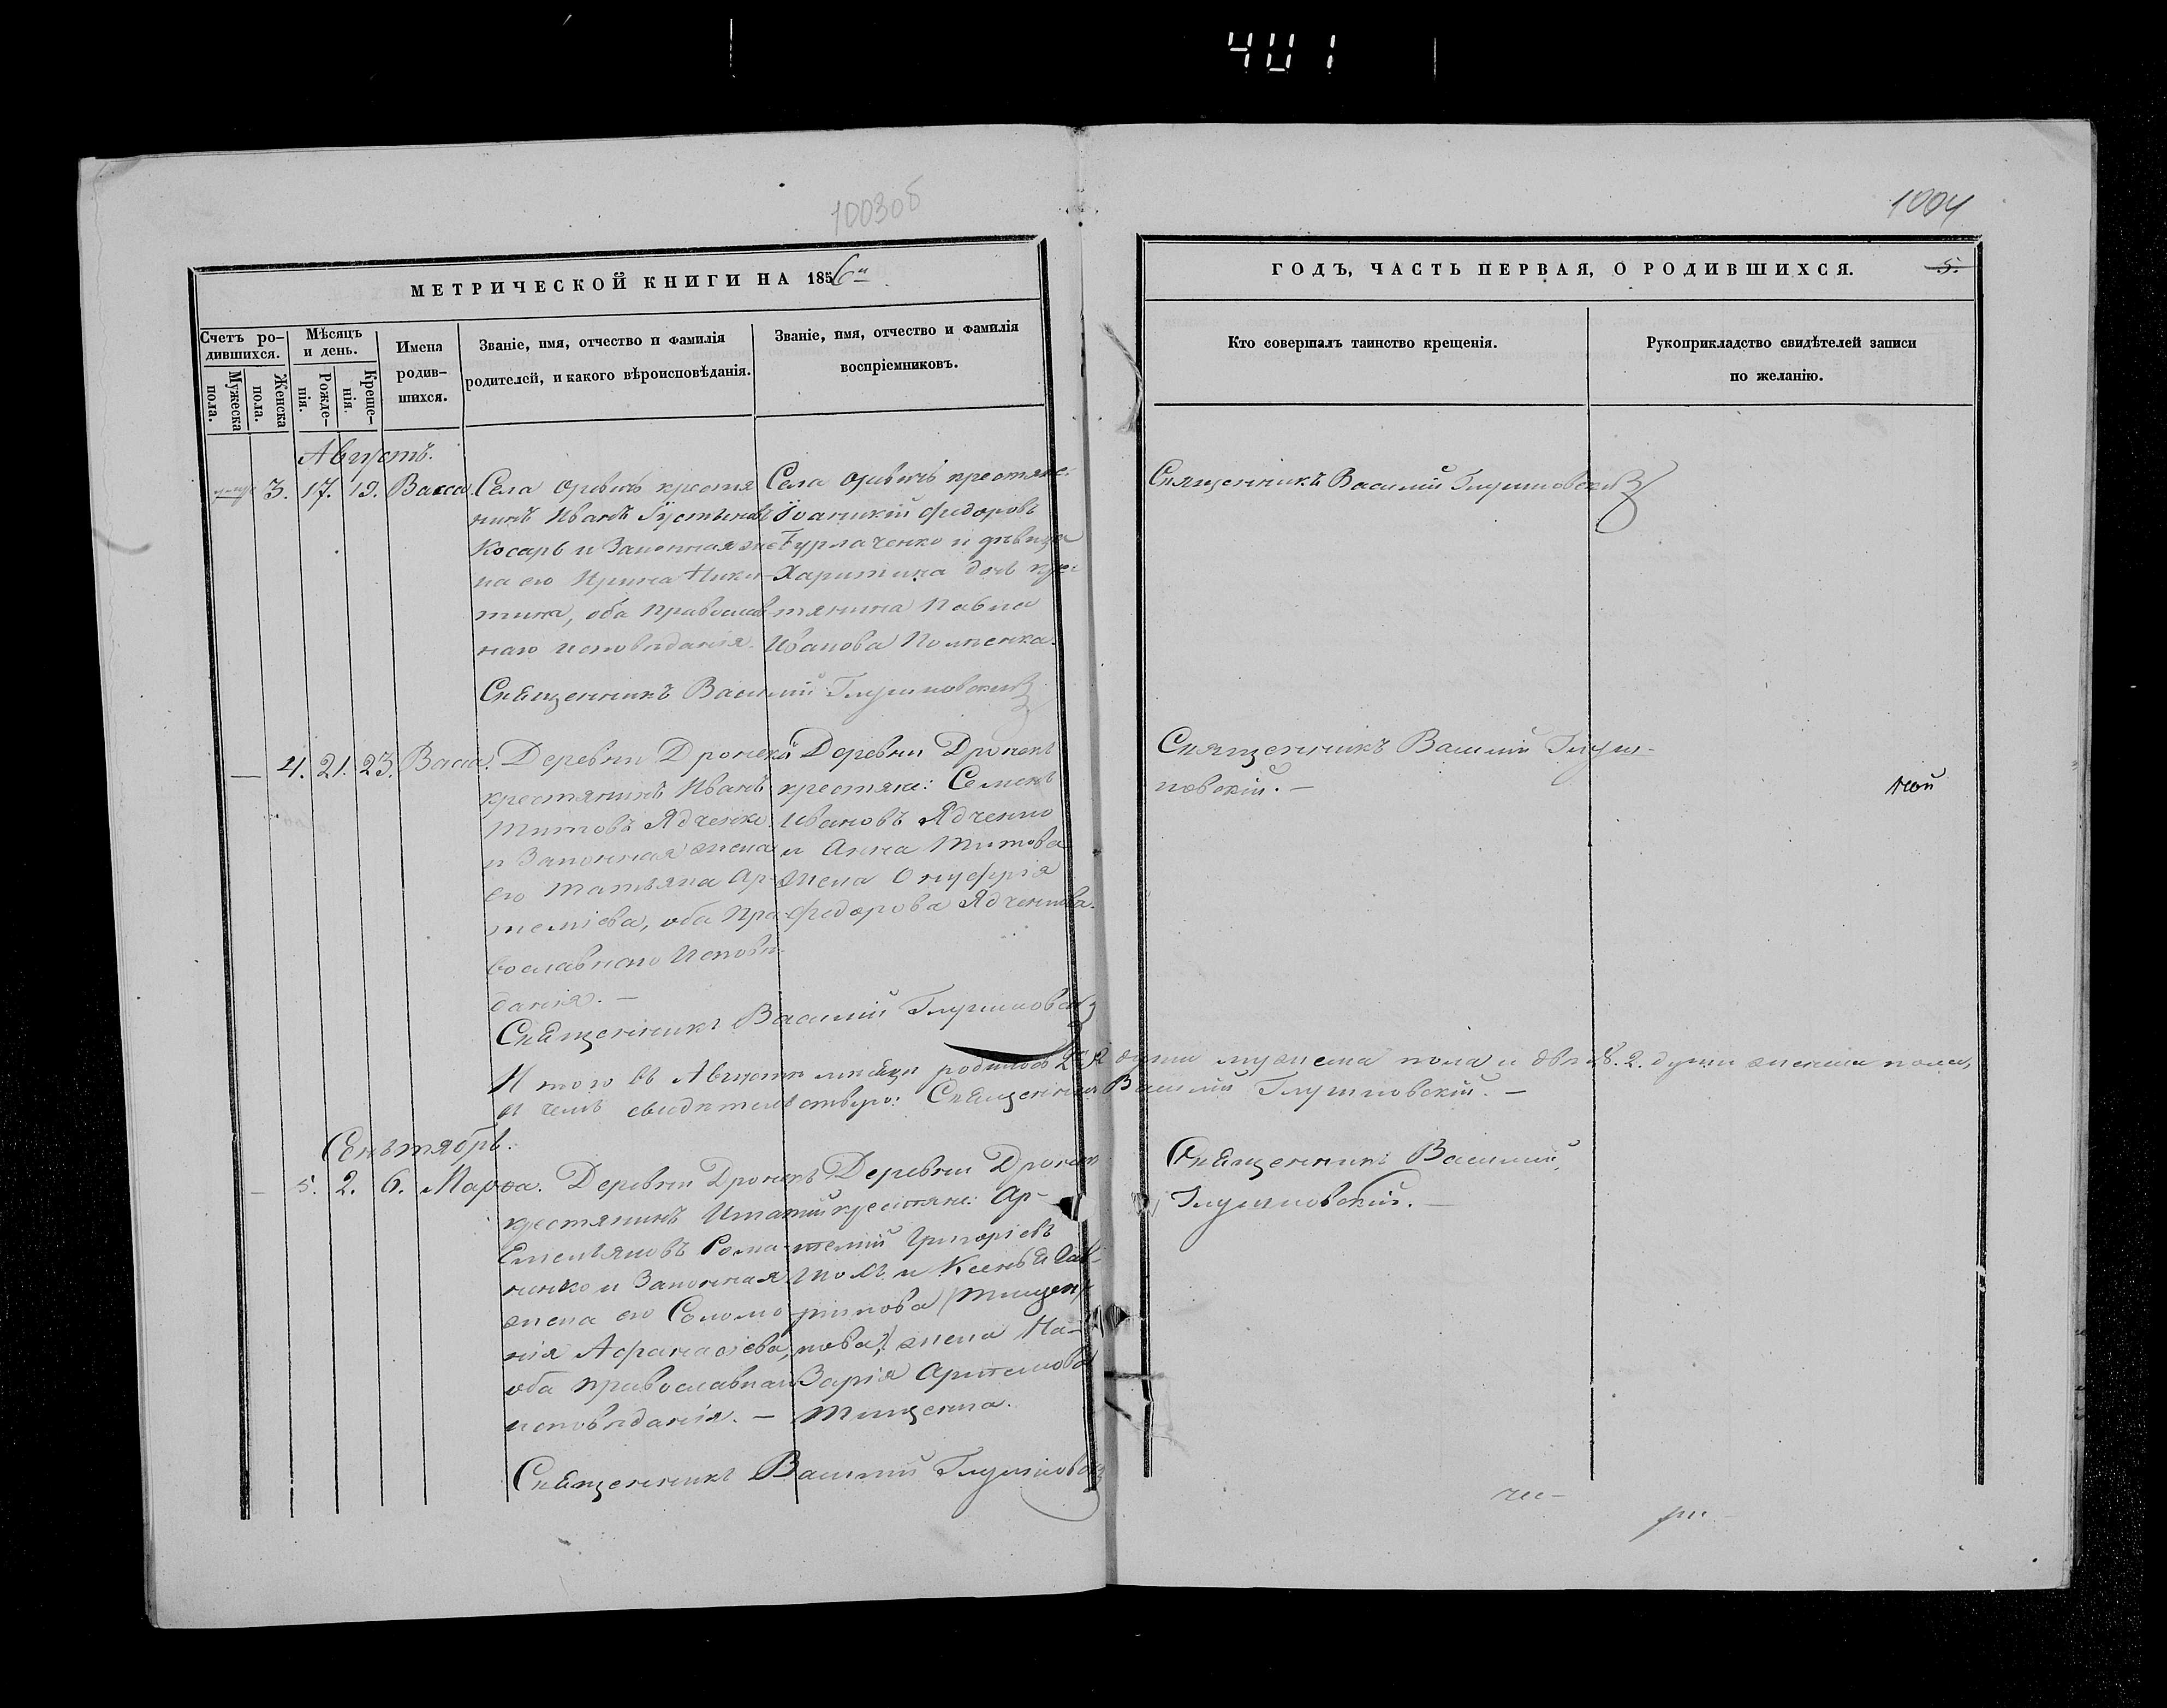 401
1003об
1004
МЕТРИЧЕСКОЙ КНИГИ НА 1856й
ГОДЪ, ЧАСТЬ ПЕРВАЯ, О РОДИВШИХСЯ.
5.
Счетъ ро-
дившихся.
Мужеска
пола.
Женска
пола.
Мѣсяцъ
и день.
Рожде-
нія.
Креще-
нія.
Имена
родив-
шихся.
Званіе, имя, отчество и фамилія
родителей, и какого вѣроисповѣданія.
Званіе, имя, отчество и фамилія
воспріемниковъ.
Кто совершалъ таинство крещенія.
Рукоприкладство свидѣтелей записи
по желанію.
Августъ.
3. 17. 19. Васса.
Села крестя
нинъ Иванъ
Косарь и Законная же
на его Ирина Ники-
тина, оба православ
наго исповѣданія.
Села крестяне:
Іоаникій Федоровъ
Бурлаченко и дѣвица
Харитина дочь крес
тянина Павла
Иванова
Священникъ Василій Глушковскій
Священникъ Василій Глушковскій
4. 21. 23. Васса.
Деревни
крестянинъ Иванъ
Титовъ Ядченко
и Законная жена
его Татьяна Ар-
темієва, оба Пра-
вославнаго Исповѣ-
данія. —
Деревни
крестяне: Семенъ
Ивановъ Ядченко
и Анна Титова
жена Онуфрія
Федорова Ядченкова.
Священникъ Василій Глушковскій
Священникъ Василій Глуш-
ковскій. —
кой
Итого въ Августѣ мѣсяцѣ родилось 2 души мужеска пола и двѣ 2. души женска пола,
въ чемъ свидѣтельствую: Священникъ Василій Глушковскій. —
Сентябрь.
5. 2. 6. Марѳа.
Деревни
крестянинъ
Емельяновъ Рома-
ненко и Законная
жена его Соломо-
нія Афанасіева,
оба православнаго
исповѣданія. —
Деревни
крестяне: Ар-
темій Григоріевъ
и Ксенья Гав-
рилова
жена На-
зарія Артемова
Тищенка.
Священникъ Василій Глушковскій
Священникъ Василій
Глушковскій. —